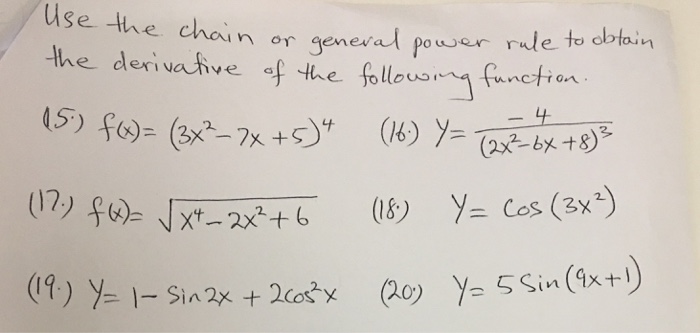 Use the chain or general power rule to obtain
the derivative of the following function.
(15.) f(x)= (3x²-7x+5)⁴ (16.) Y= -4/(2x²-6x+8)³
(17.) f(x)= √x⁴-2x²+6 (18.) Y= Cos (3x²)
(19.) Y= 1- Sin2x + 2cos²x (20.) Y= 5 Sin(9x+1)